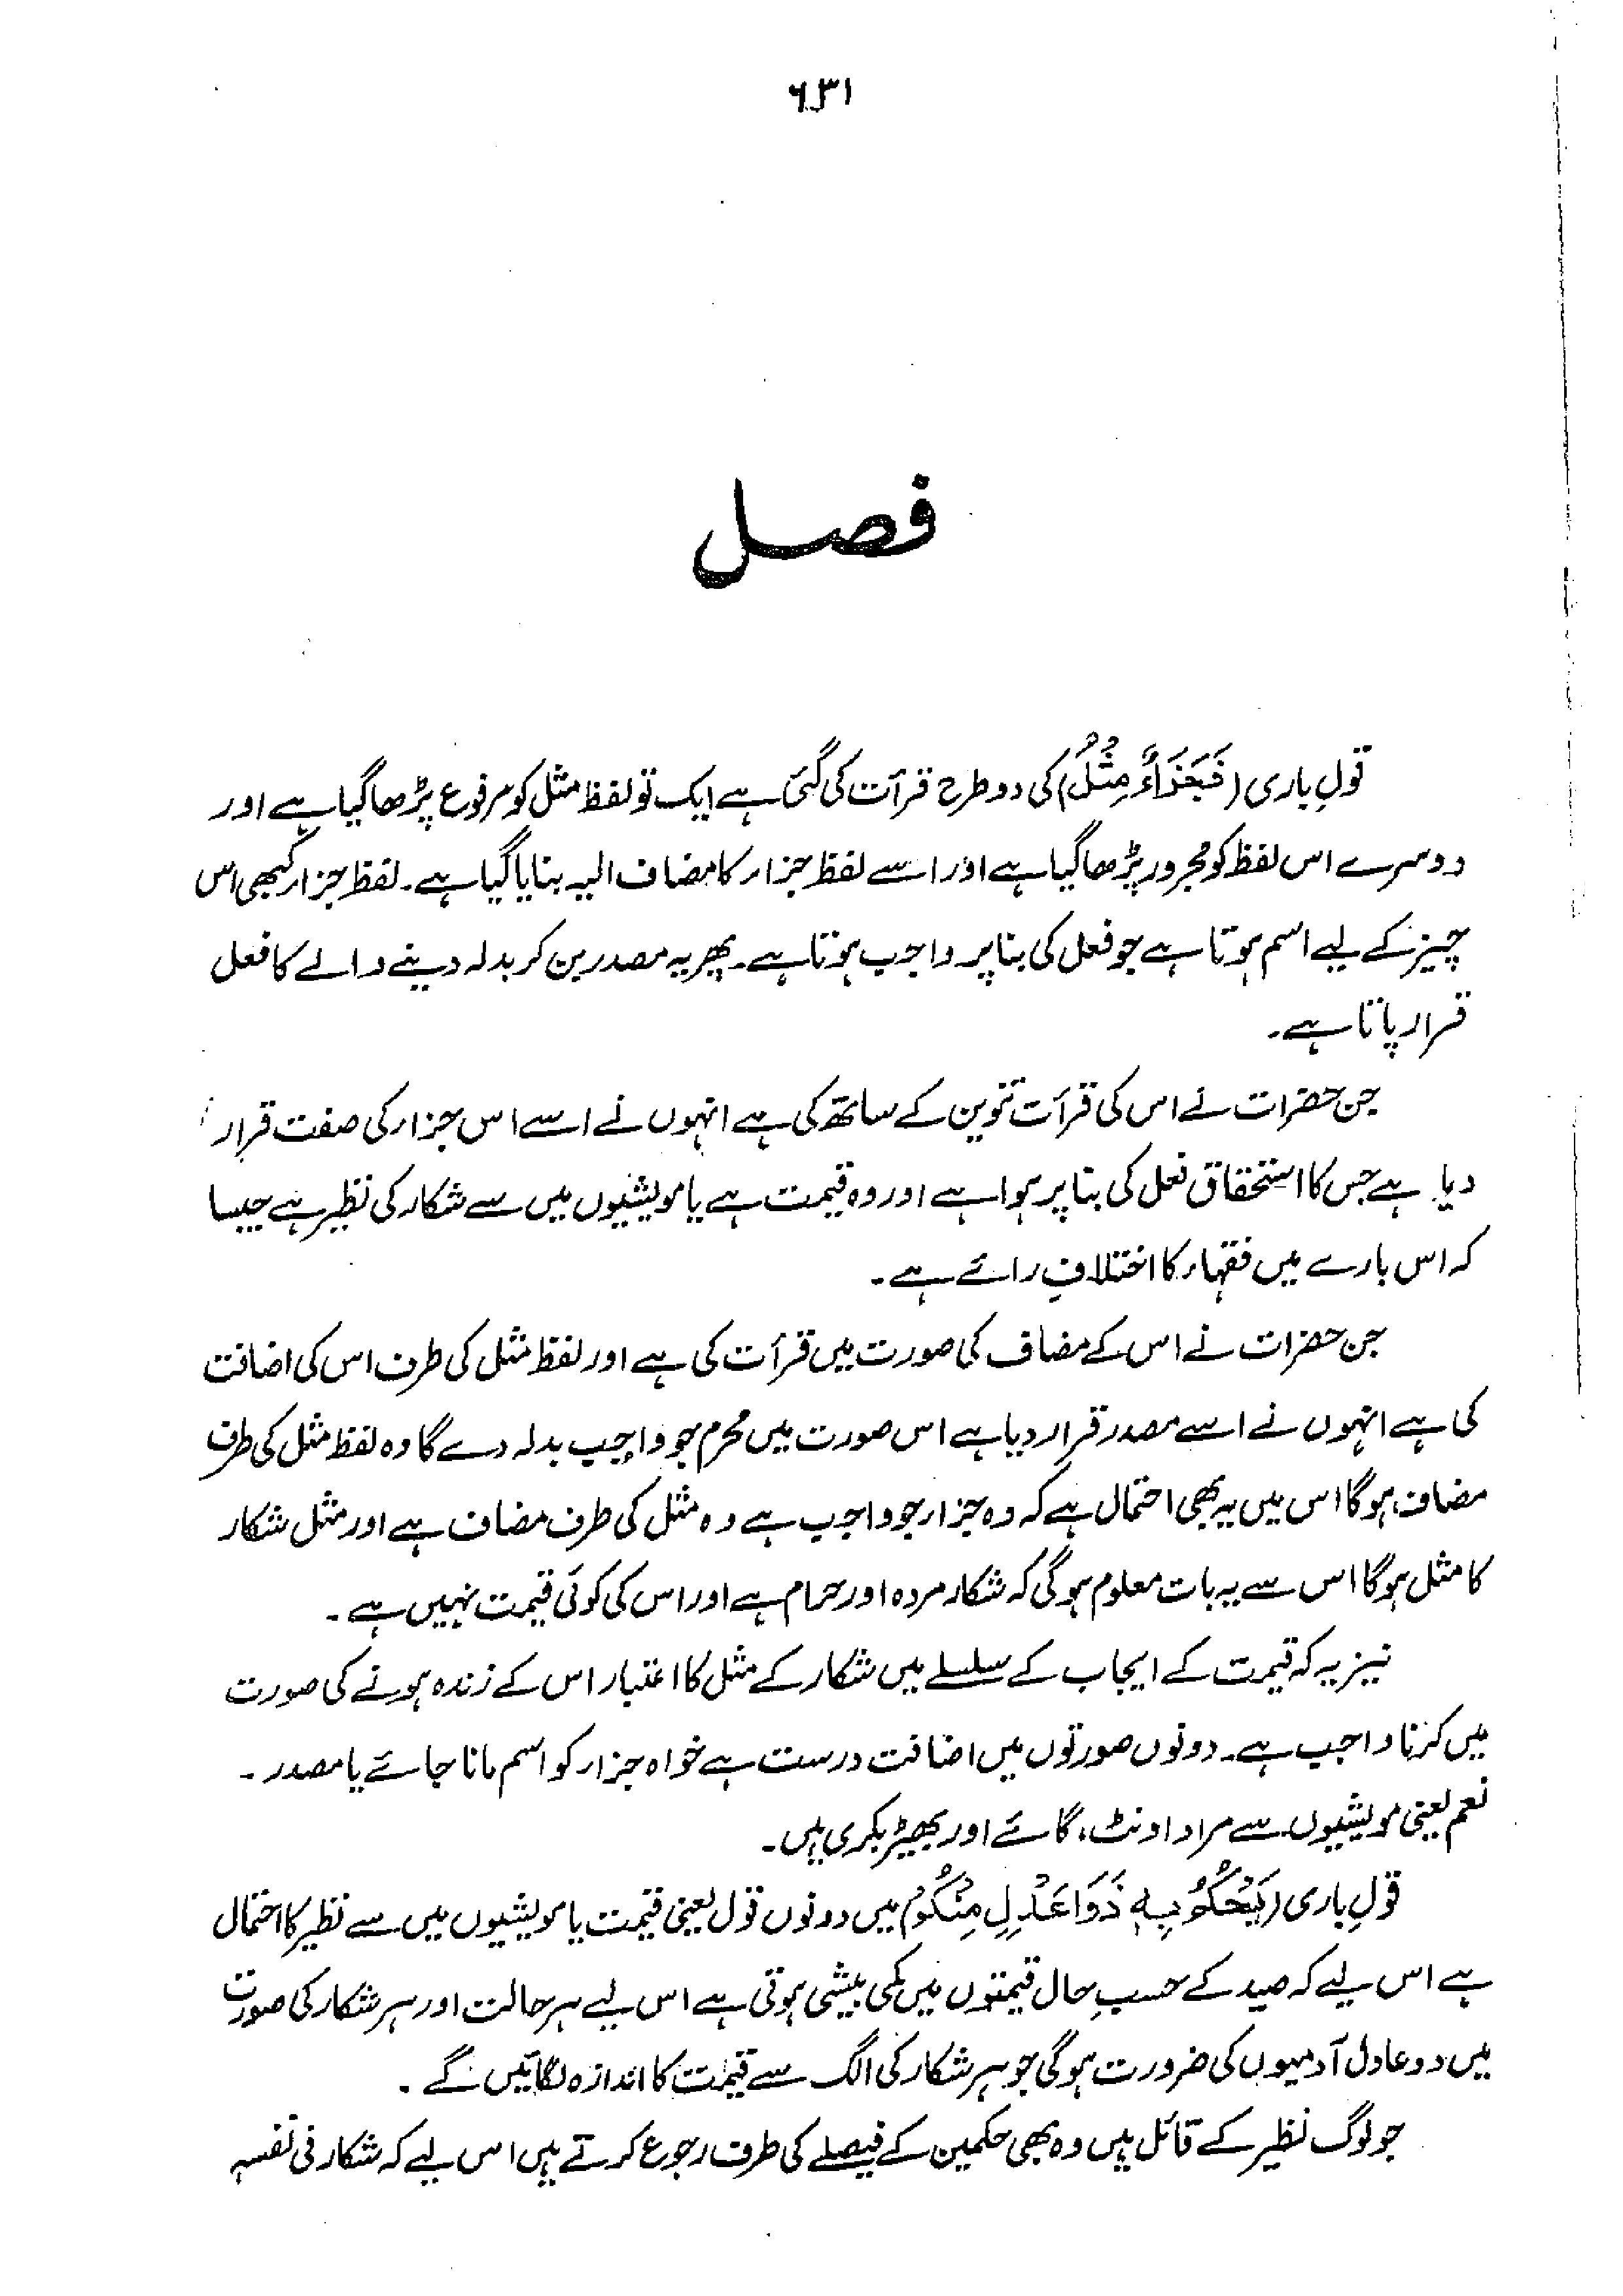 ۶۳۱
فصل
قولِ باری (فَجَزَاءٌ مِثْلُ) کی دو طرح قرآت کی گئی ہے ایک تو لفظ مثل کو مرفوع پڑھا گیا ہے اور
دوسرے اس لفظ کو مجرور پڑھا گیا ہے اور اسے لفظ جزاء کا مضاف الیہ بنایا گیا ہے۔ لفظ جزاء کبھی اس
چیز کے لیے اسم ہوتا ہے جو فعل کی بنا پر واجب ہوتا ہے۔ پھر یہ مصدر بن کر بدلہ دینے والے کا فعل
قرار پاتا ہے۔
جن حضرات نے اس کی قرآت تنوین کے ساتھ کی ہے انہوں نے اسے اس جزاء کی صفت قرار
دیا ہے جس کا استحقاق فعل کی بنا پر ہوا ہے اور وہ قیمت ہے یا مویشیوں میں سے شکار کی نظیر ہے جیسا
کہ اس بارے میں فقہاء کا اختلافِ رائے ہے۔
جن حضرات نے اس کے مضاف کی صورت میں قرآت کی ہے اور لفظ مثل کی طرف اس کی اضافت
کی ہے انہوں نے اسے مصدر قرار دیا ہے اس صورت میں محرم جو واجب بدلہ دے گا وہ لفظ مثل کی طرف
مضاف ہوگا اس میں یہ بھی احتمال ہے کہ وہ جزاء جو واجب ہے وہ مثل کی طرف مضاف ہے اور مثل شکار
کا مثل ہوگا اس سے یہ بات معلوم ہوگی کہ شکار مردہ اور حرام ہے اور اس کی کوئی قیمت نہیں ہے۔
نیز یہ کہ قیمت کے ایجاب کے سلسلے میں شکار کے مثل کا اعتبار اس کے زندہ ہونے کی صورت
میں کرنا واجب ہے۔ دونوں صورتوں میں اضافت درست ہے خواہ جزاء کو اسم مانا جائے یا مصدر۔
نعم یعنی مویشیوں سے مراد اونٹ، گائے اور بھیڑ بکری ہیں۔
قولِ باری (يَحْكُمُ بِهِ ذَوَا عَدْلٍ مِنْكُمْ) میں دونوں قول یعنی قیمت یا مویشیوں میں سے نظیر کا احتمال
ہے اس لیے کہ صید کے حسبِ حال قیمتوں میں کمی بیشی ہوتی ہے اس لیے ہر حالت اور ہر شکار کی صورت
میں دو عادل آدمیوں کی ضرورت ہوگی جو ہر شکار کی الگ سے قیمت کا اندازہ لگائیں گے۔
جو لوگ نظیر کے قائل ہیں وہ بھی حکمین کے فیصلے کی طرف رجوع کرتے ہیں اس لیے کہ شکار فی نفسہ